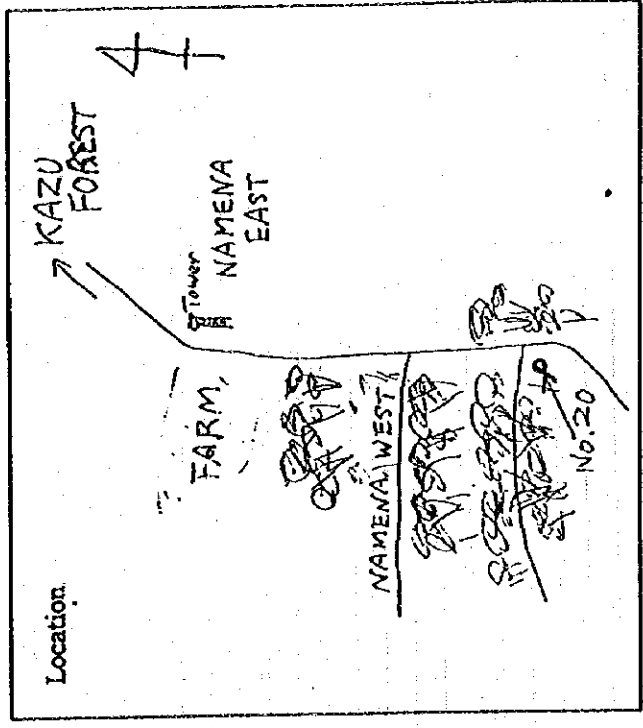 Location
KAZU
FOREST
Tower
NAMENA
EAST
FARM
NAMENA WEST
No.20